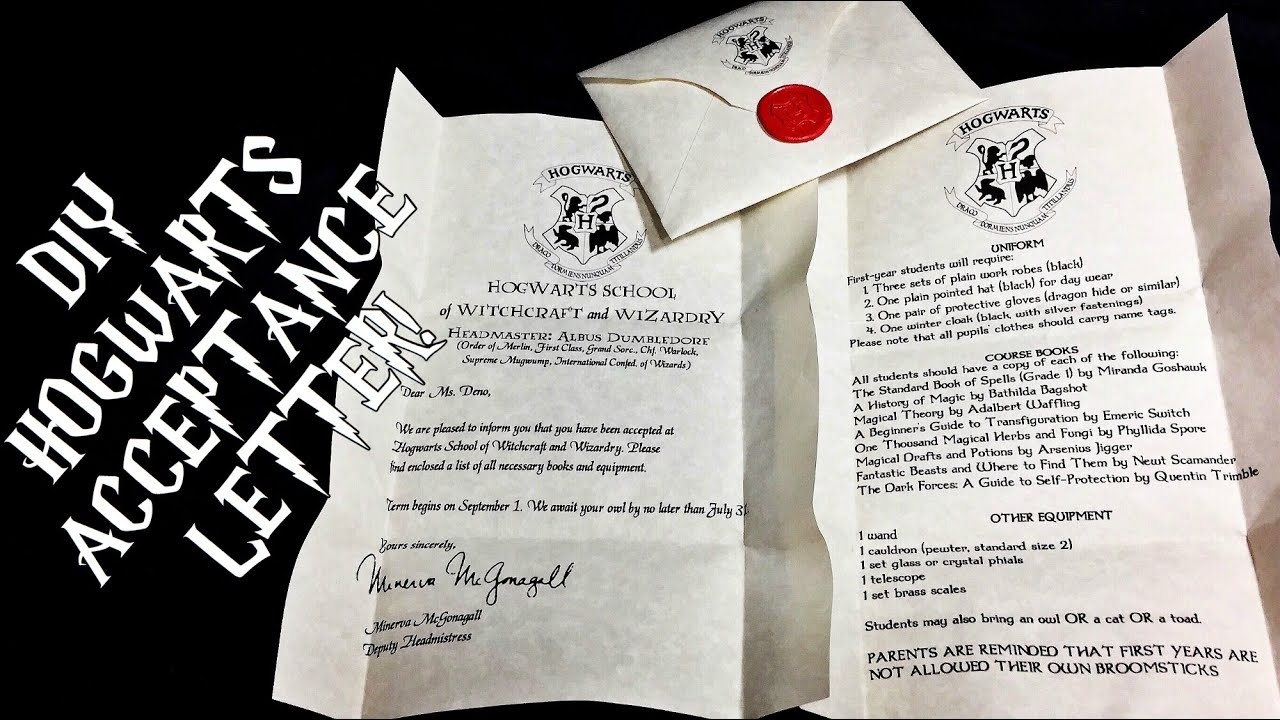 DIY
HOGWARTS
ACCEPTANCE
LETTER!
HOGWARTS
DRACO DORMIENS NUNQUAM TITILLANDUS
H
HOGWARTS SCHOOL
of WITCHCRAFT and WIZARDRY
HEADMASTER: ALBUS DUMBLEDORE
(Order of Merlin, First Class, Grand Sorc., Chf. Warlock,
Supreme Mugwump, International Confed. of Wizards)
Dear Ms. Deno,
We are pleased to inform you that you have been accepted at
Hogwarts School of Witchcraft and Wizardry. Please
find enclosed a list of all necessary books and equipment.
Term begins on September 1. We await your owl by no later than July 31
Yours sincerely,
Minerva McGonagall
Minerva McGonagall
Deputy Headmistress
HOGWARTS
HOGWARTS
H
DRACO DORMIENS NUNQUAM TITILLANDUS
UNIFORM
First-year students will require:
1. Three sets of plain work robes (black)
2. One plain pointed hat (black) for day wear
3. One pair of protective gloves (dragon hide or similar)
4. One winter cloak (black, with silver fastenings)
Please note that all pupils' clothes should carry name tags.
COURSE BOOKS
All students should have a copy of each of the following:
The Standard Book of Spells (Grade 1) by Miranda Goshauk
A History of Magic by Bathilda Bagshot
Magical Theory by Adalbert Waffling
A Beginner's Guide to Transfiguration by Emeric Switch
One Thousand Magical Herbs and Fungi by Phyllida Spore
Magical Drafts and Potions by Arsenius Jigger
Fantastic Beasts and Where to Find Them by Newt Scamander
The Dark Forces: A Guide to Self-Protection by Quentin Trimble
OTHER EQUIPMENT
1 wand
1 cauldron (pewter, standard size 2)
1 set glass or crystal phials
1 telescope
1 set brass scales
Students may also bring an owl OR a cat OR a toad.
PARENTS ARE REMINDED THAT FIRST YEARS ARE
NOT ALLOWED THEIR OWN BROOMSTICKS